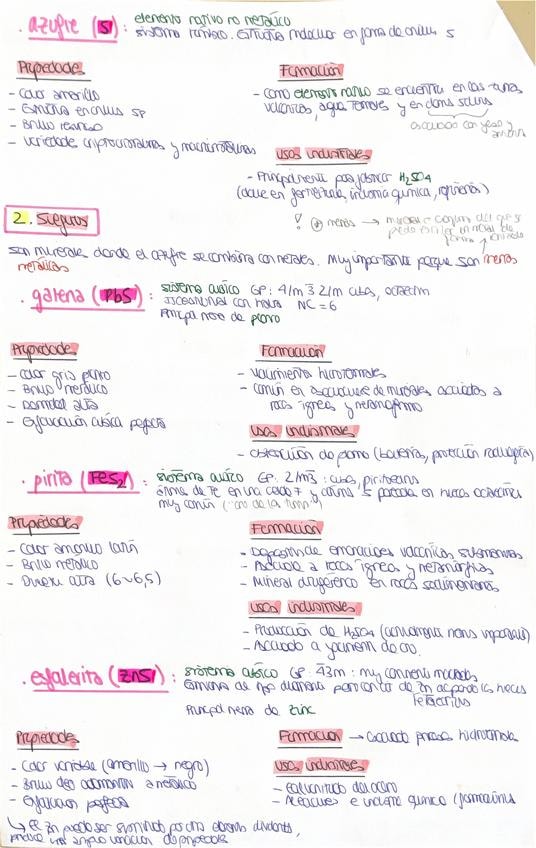 . azufre (S) : elemento nativo no metálico
sistema rómbico. Estructura molecular en forma de anillos S
Propiedades
- Color amarillo
- Estructura en anillos
- Brillo resinoso
- Variedades criptocristalinas y macrocristalinas
Formación
- como elemento nativo se encuentra en las zonas
volcánicas, aguas termales y en domos salinos
asociación con yeso y
usos industriales
- Principalmente para fabricar H₂SO4
(clave en fertilizantes, industria química,
! menas → mineral o conjunto del que se
puede extraer un metal de
forma
2. Sulfuros
son minerales donde el azufre se combina con metales. Muy importantes porque son menas
metálicas
. galena (PbS) : sistema cúbico GP: 4/m 3̅ 2/m cubos, octaedros
isoestructural con halita NC = 6
Principal mena de plomo
Propiedades
- Color gris plomo
- Brillo metálico
- Densidad alta
- Exfoliación cúbica perfecta
Formación
- Yacimientos hidrotermales
- Común en asociaciones de minerales asociados a
rocas ígneas y metamorfismo
usos industriales
- Obtención de plomo (baterías, protección radiológica)
. pirita (FeS₂) : sistema cúbico GP: 2/m3̅ : cubos, piritoedros
átomos de Fe en una celda F y átomos S en huecos octaédricos
muy común ("oro de los tontos")
Propiedades
- Color amarillo latón
- Brillo metálico
- Dureza alta (6~6,5)
Formación
- Deposición de emanaciones volcánicas submarinas
- Asociada a rocas ígneas y metamórficas
- Mineral diagenético en rocas sedimentarias
usos industriales
- Producción de H₂SO4 (actualmente menos importante)
- Asociado a yacimientos de oro.
. esfalerita (ZnS) : sistema cúbico GP: 4̅3m : muy comunes maclados
Estructura de tipo diamante pero átomos de Zn ocupando los huecos
tetraédricos
Principal mena de zinc
Propiedades
- Color variable (amarillo → negro)
- Brillo desde adamantino a metálico
- Exfoliación perfecta
↳ El Zn puede ser sustituido por otros elementos divalentes,
produce una amplia variación de propiedades
Formación → asociado procesos hidrotermales
usos industriales
- Galvanizado del acero
- Aleaciones e industria química